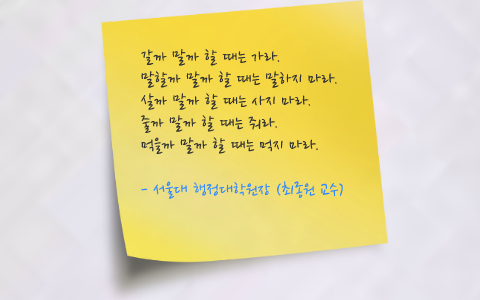 갈까 말까 할 때는 가라.
말할까 말까 할 때는 말하지 마라.
살까 말까 할 때는 사지 마라.
줄까 말까 할 때는 줘라.
먹을까 말까 할 때는 먹지 마라.
- 서울대 행정대학원장 (최종원 교수)